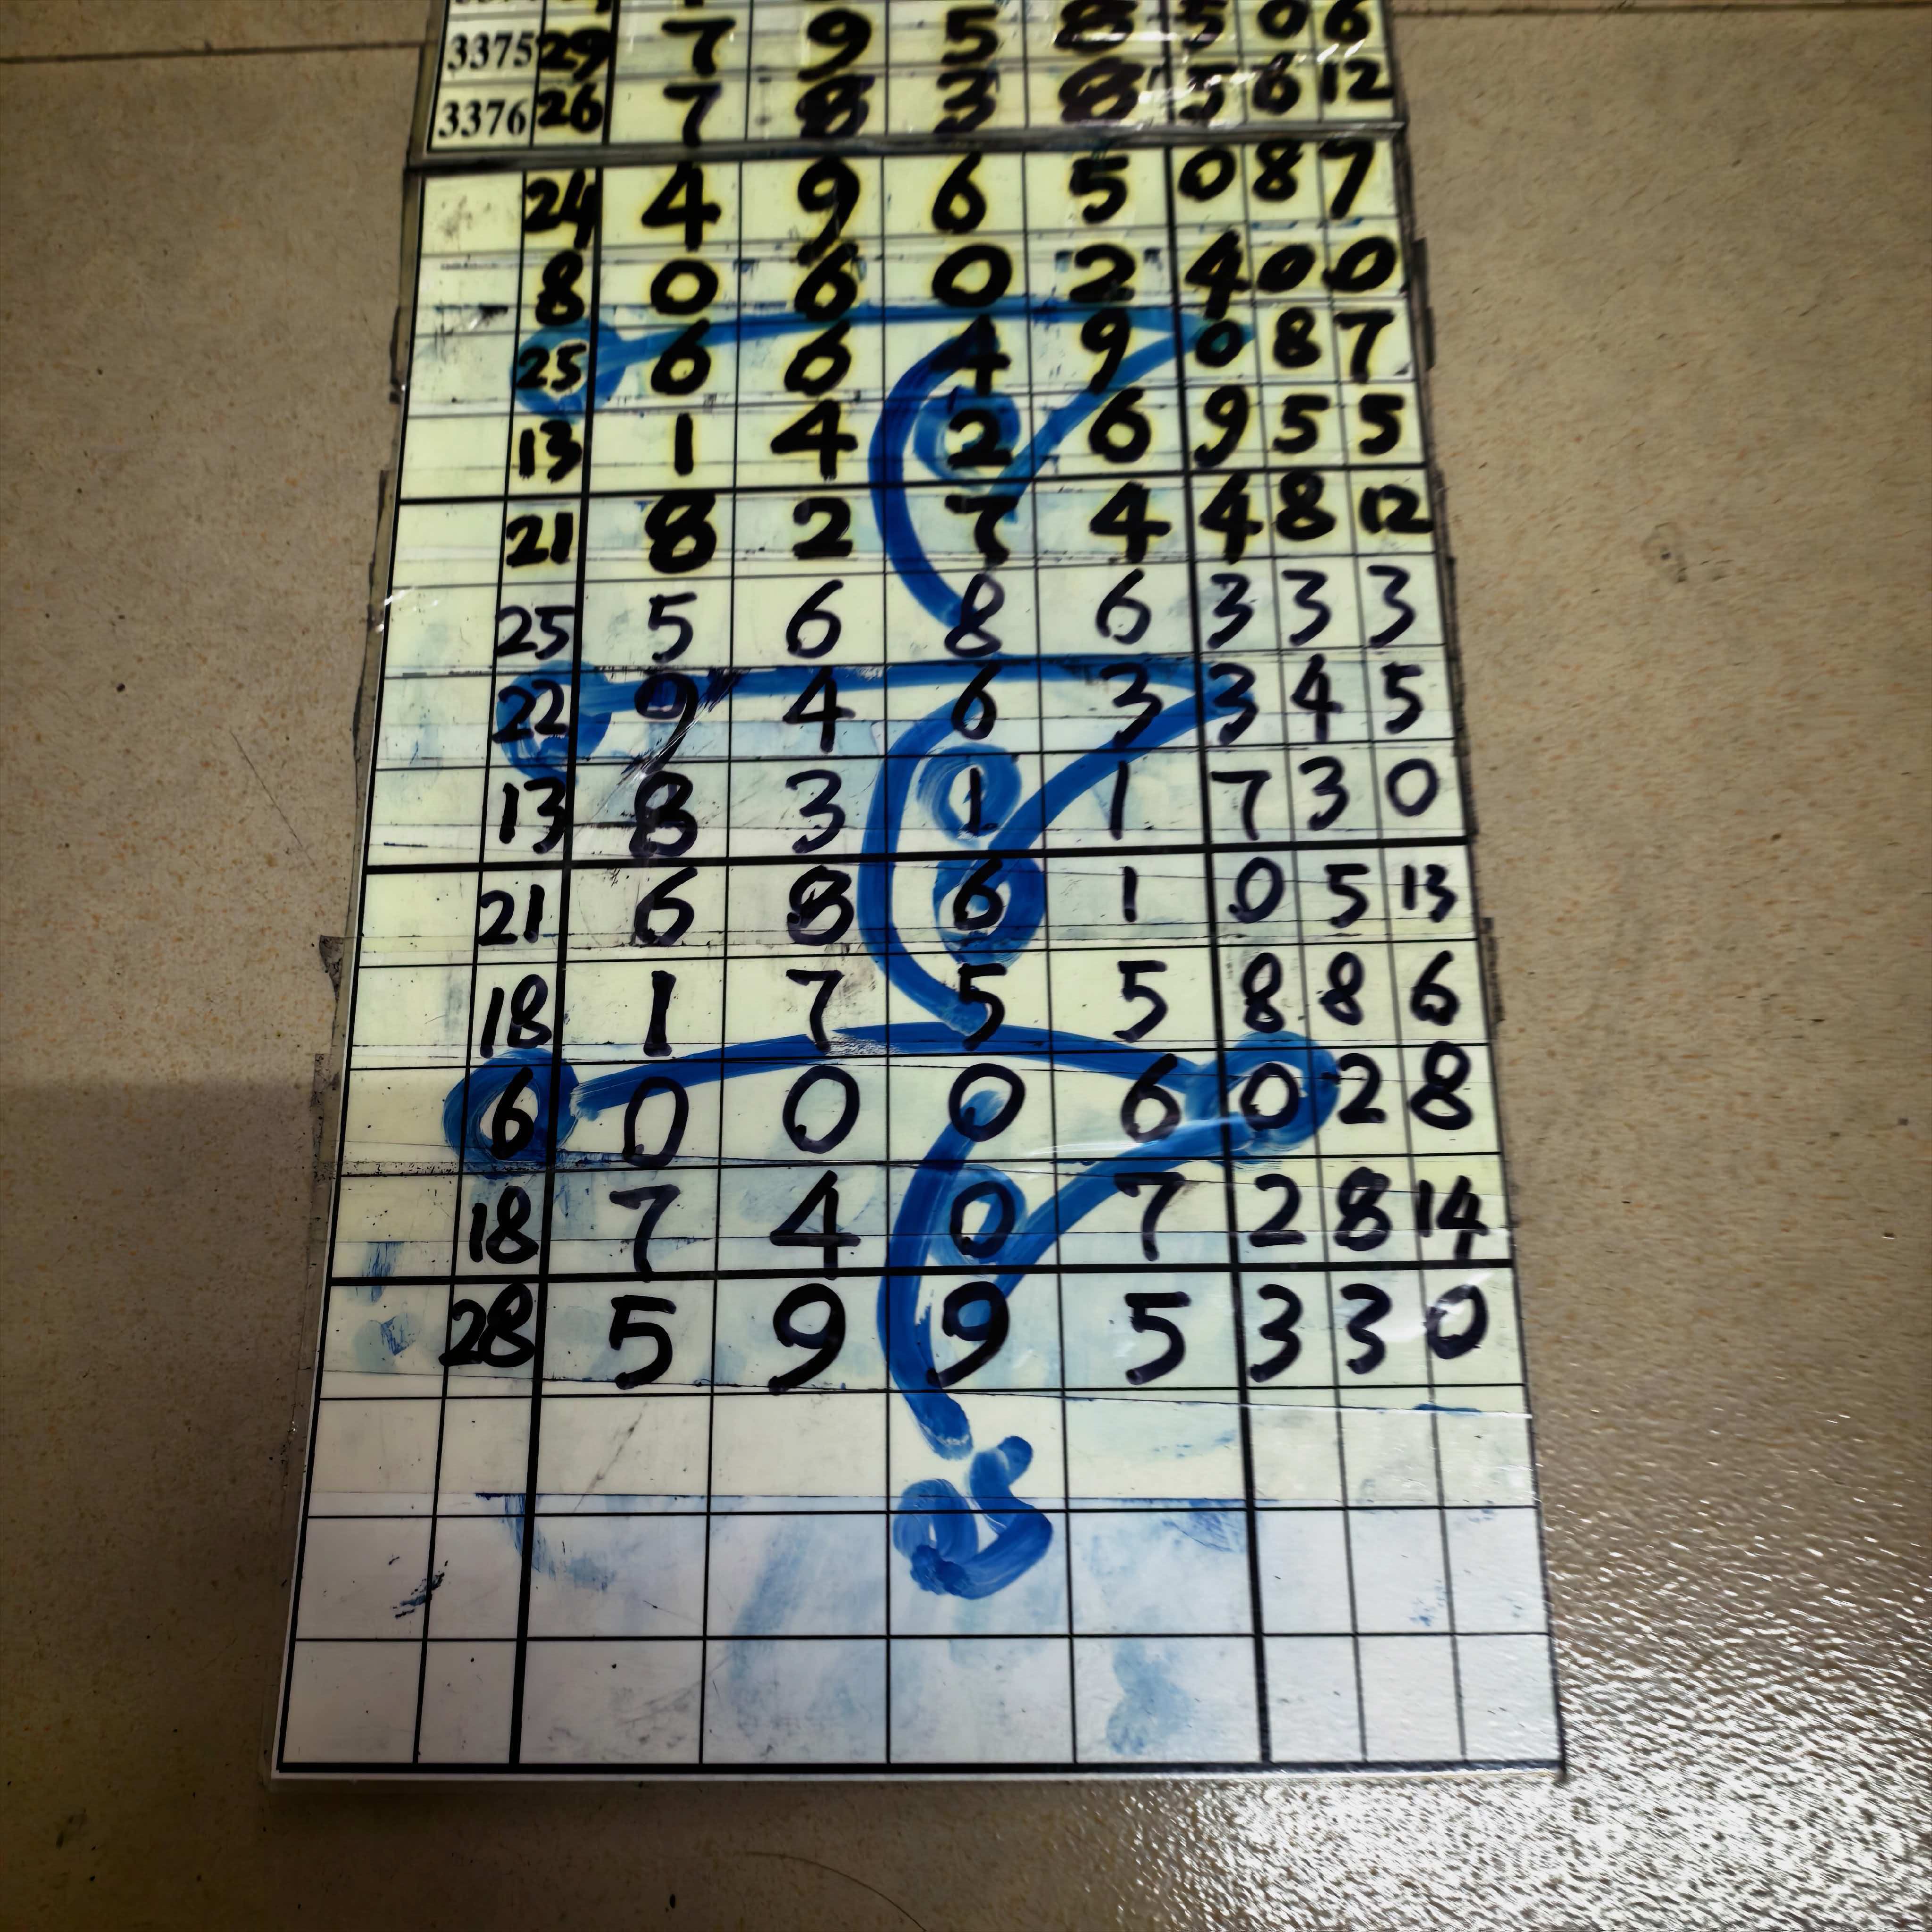 3375 29 7 9 5 8 5 0 6
3376 26 7 8 3 8 5 6 12
24 4 9 6 5 0 8 7
8 0 6 0 2 4 0 0
25 6 6 4 9 0 8 7
13 1 4 2 6 9 5 5
21 8 2 7 4 4 8 12
25 5 6 8 6 3 3 3
22 9 4 6 3 3 4 5
13 8 3 1 1 7 3 0
21 6 8 6 1 0 5 13
18 1 7 5 5 8 8 6
6 0 0 0 6 0 2 8
18 7 4 0 7 2 8 14
28 5 9 9 5 3 3 0